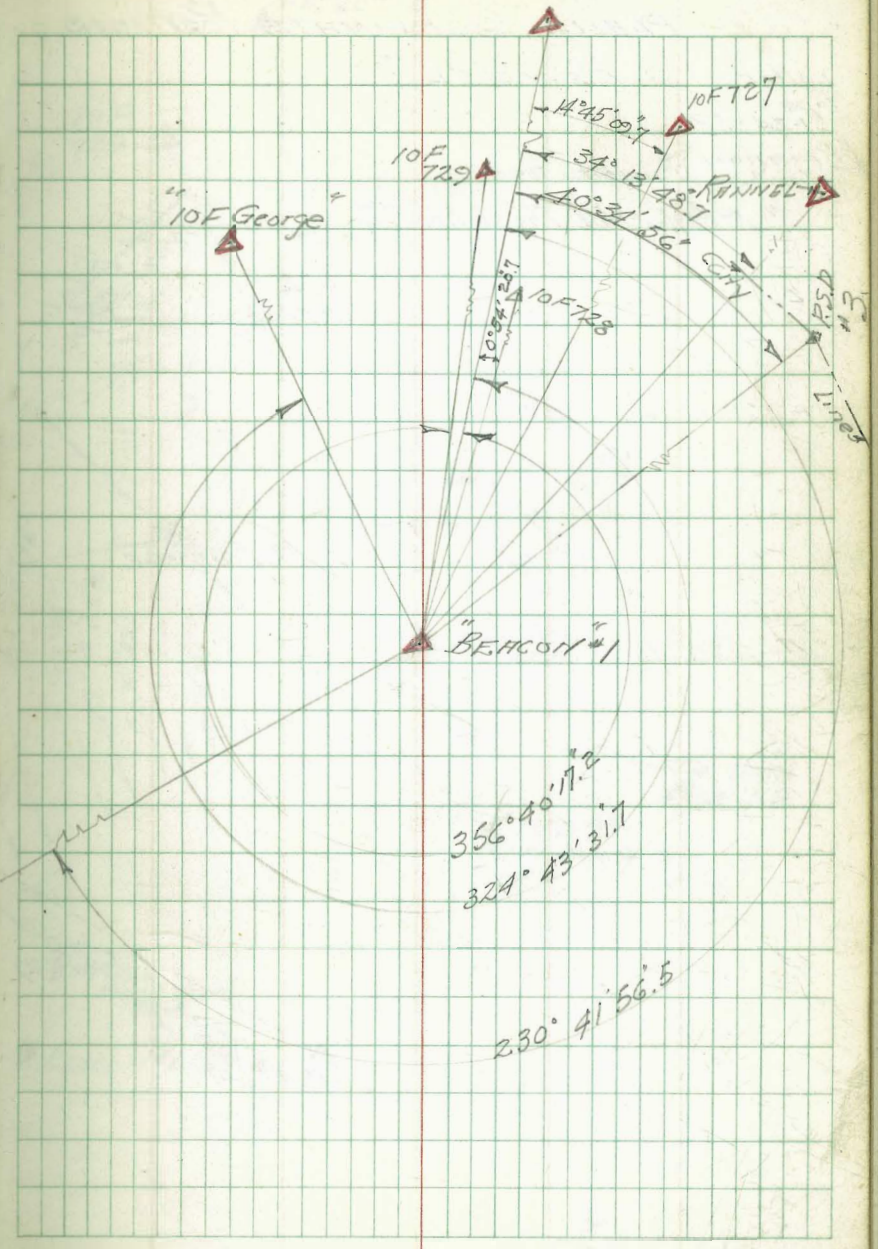 14°45'09".7
10F727
10F
729
34° 13' 48".7
RANNEL
"10F George"
40°34' 56"
CITY
P.S.D
#3
0°54' 20".7
10F728
Lines
"BEACON" #1
356°40'17".2
324° 43' 31".7
230° 41' 56".5